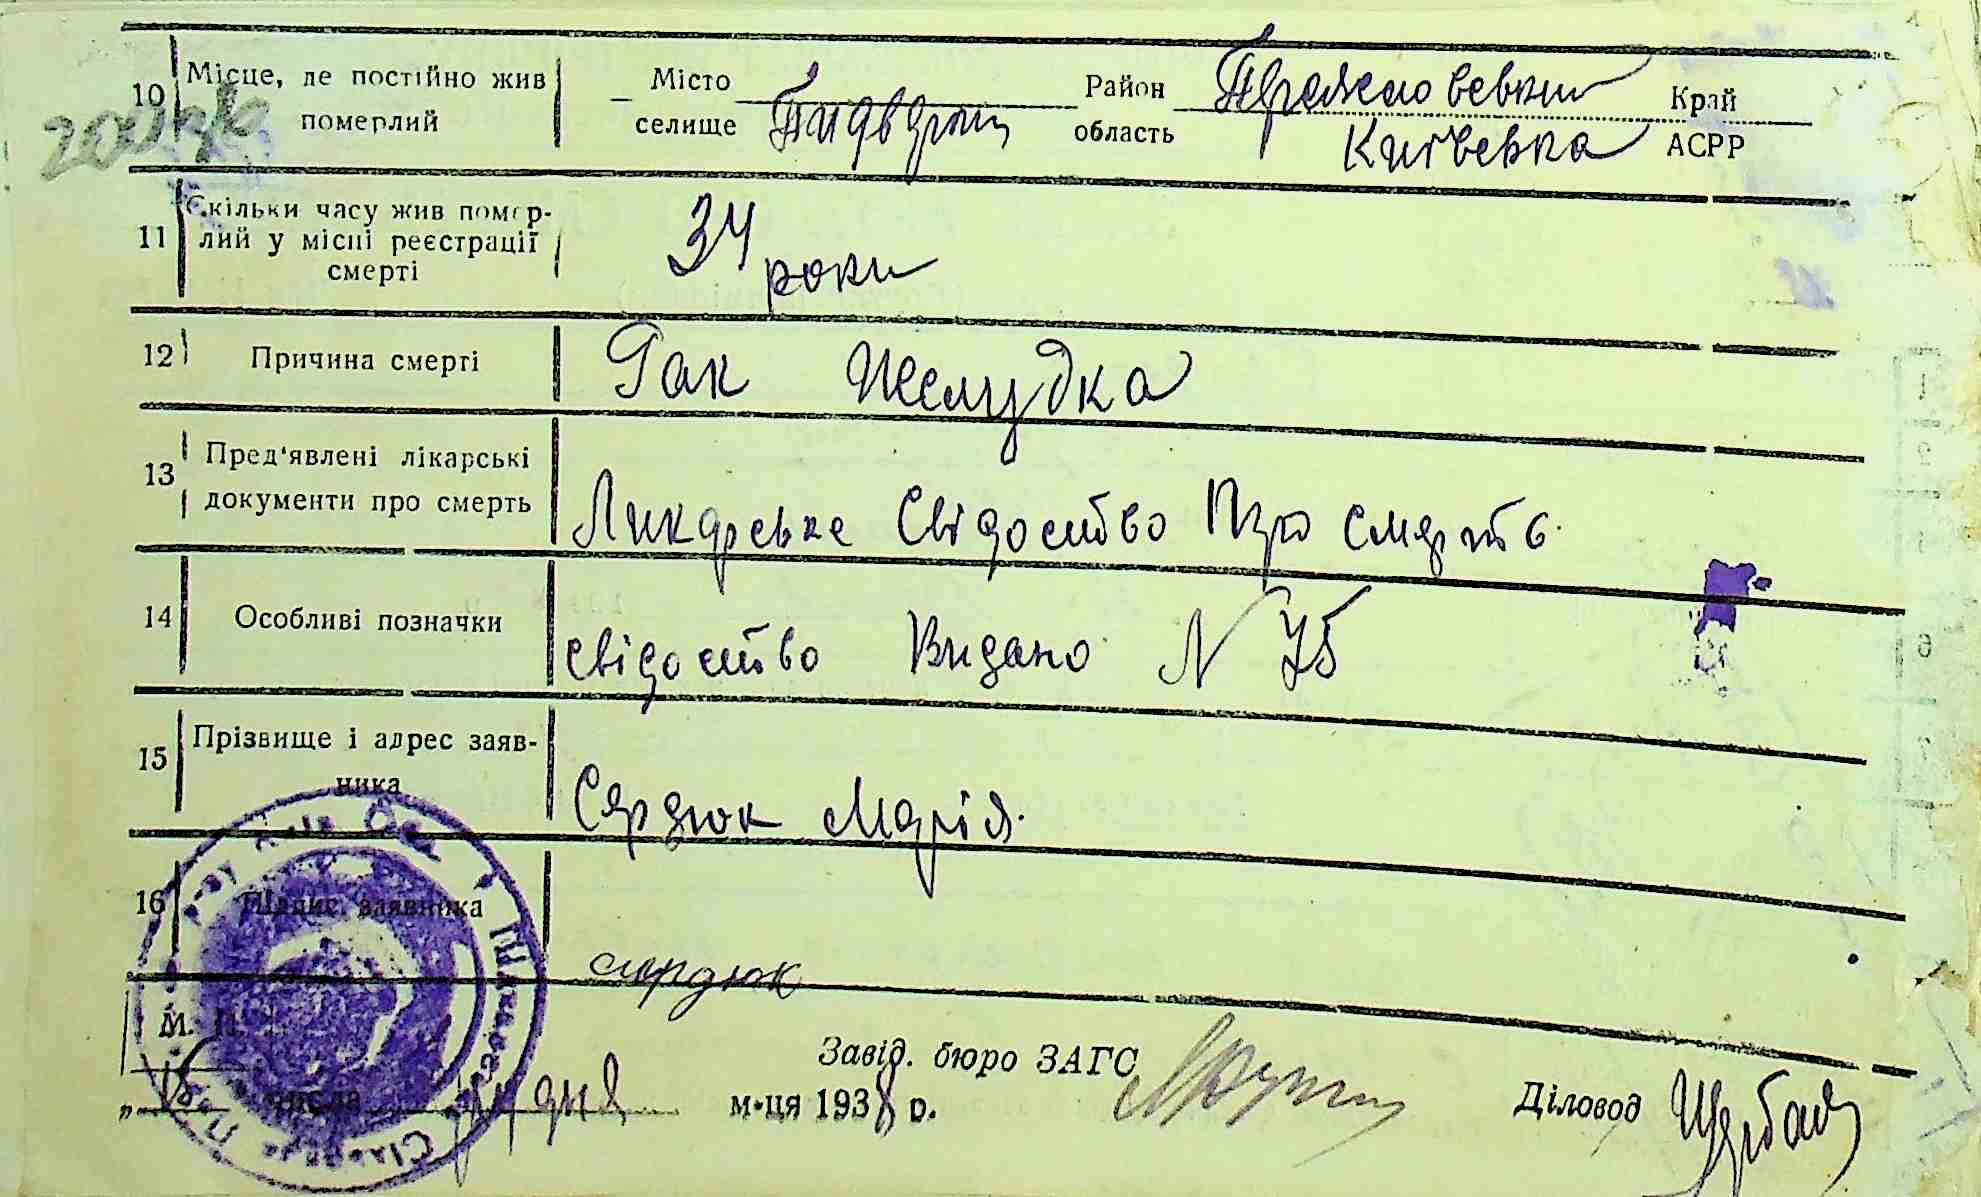 10 Місце, де постійно жив померлий
Місто селище Пидвирки
Район область
Киівська
Край АСРР
11 Скільки часу жив помер-
лий у місці реєстрації
смерті
34 роки
12 Причина смерті Рак Желудка
13 Пред'явлені лікарські
документи про смерть
Ликарське Свідоство Про смерть.
14 Особливі позначки свідоство Видано N 75
15 Прізвище і адрес заяв-
ника
Сердюк Марія.
16 Підпис заявника
сердюк
М. П.
Завід. бюро ЗАГС
„18 числа грудня м-ця 1938 р.
Діловод